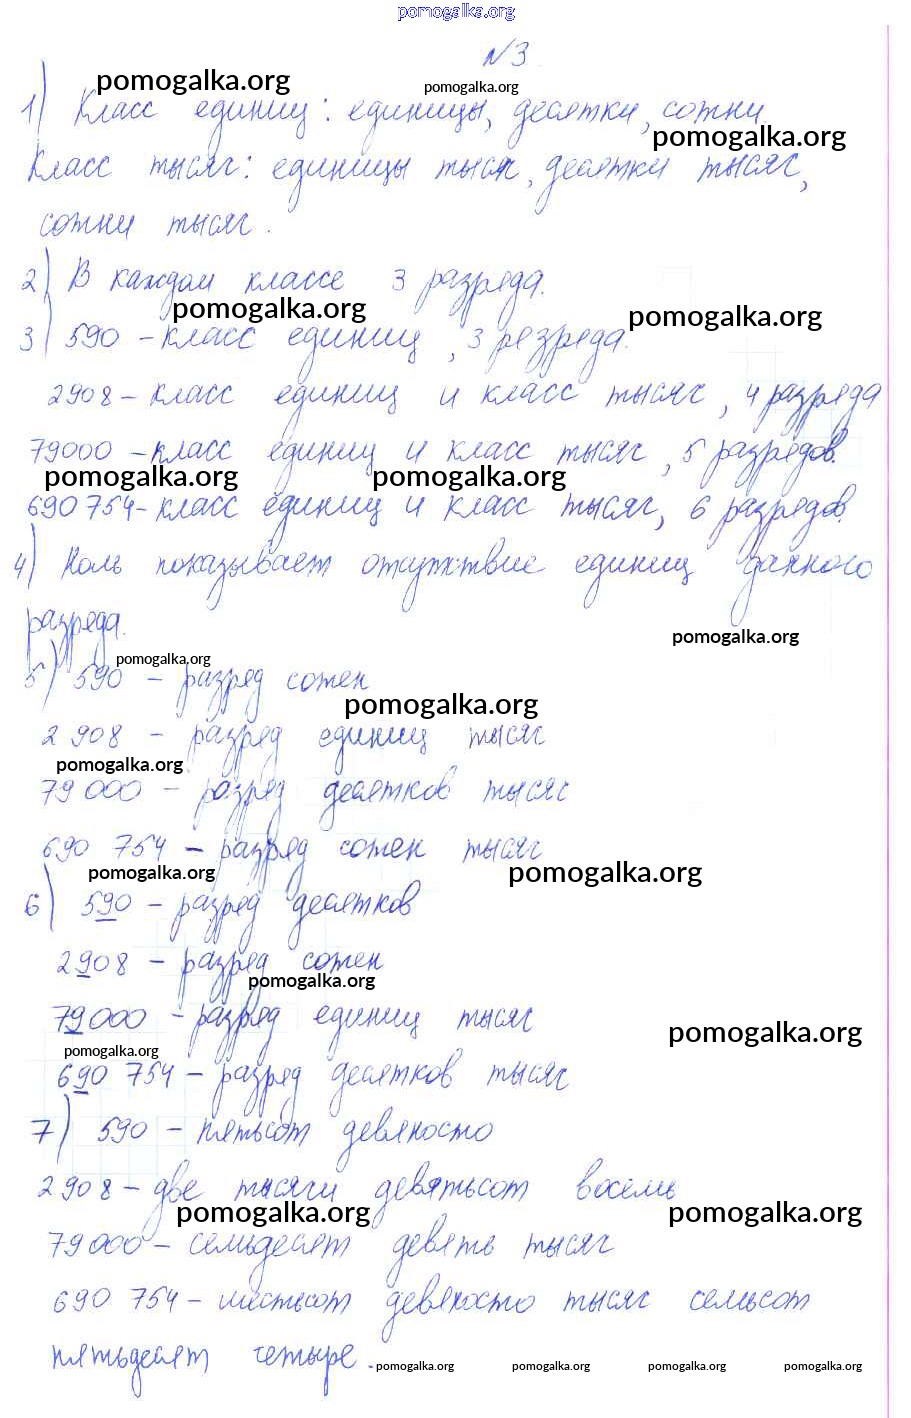 pomogalka.org
N3.
pomogalka.org pomogalka.org
1) Класс единиц: единицы, десятки, сотни
pomogalka.org
Класс тысяч: единицы тысяч, десятки тысяч,
сотни тысяч.
2) В каждом классе 3 разряда.
pomogalka.org pomogalka.org
3) 590 – класс единиц, 3 резряда.
2908 – класс единиц и класс тысяч, 4 разряда
79000 – класс единиц и класс тысяч, 5 разрядов.
pomogalka.org pomogalka.org
690754 – класс единиц и класс тысяч, 6 разрядов.
4) Ноль показывает отсутствие единиц данного
разряда.
pomogalka.org
pomogalka.org
5) 590 – разряд сотен
pomogalka.org
2 908 – разряд единиц тысяч
pomogalka.org
79 000 – разряд десятков тысяч
690 754 – разряд сотен тысяч
pomogalka.org pomogalka.org
6) 590 – разряд десятков
2908 – разряд сотен
pomogalka.org
79000 – разряд единиц тысяч
pomogalka.org
pomogalka.org
690 754 – разряд десятков тысяч
7) 590 – пятьсот девяносто
2 908 – две тысячи девятьсот восемь
pomogalka.org pomogalka.org
79 000 – семьдесят девять тысяч
690 754 – шестьсот девяносто тысяч семьсот
пятьдесят четыре.
pomogalka.org pomogalka.org pomogalka.org pomogalka.org